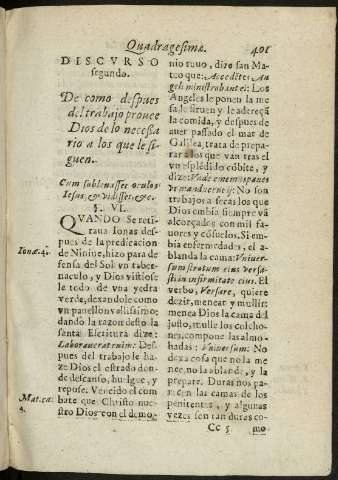 Quadragesima. 401
DISCVRSO
segundo.
De como despues
del trabajo prouee
Dios de lo necessa
rio a los que le si-
guen.
Cum subleuasset oculos
Iesus, & vidisset, &c.
§. VI.
QVANDO Se reti
raua Ionas des-
pues de la predicacion
de Niniue, hizo para de
fensa del Sol vn taber-
naculo, y Dios vistiose
le todo de vna yedra
verde, dexandole como
vn pauellon vistissimo:
dando la razon desto la
santa Escritura dize:
Laborauerat enim: Des-
pues del trabajo le ha-
ze Dios el estrado don-
de descanso, huelgue, y
repose. Vencido el com
bate que Christo nue-
stro Dios con el demo-
Ionæ. 4.
Mat. ca.
4.
nio tuuo, dize san Ma-
teo que: Accedētes An
geli ministrabant ei: Los
Angeles le ponen la me
sa, le siruen y le adereçā
la comida, y despues de
auer passado el mar de
Galilea, trata de prepa-
rar a los que van tras el
vn esplēdido cōbite, y
dize: Vnde ememos panes
vt manducent hi: No son
trabajos a secas los que
Dios embia siempre vā
alcorçados con mil fa-
uores y cōsuelos. Si em-
bia enfermedades, el a-
blanda la cama: Vniuer-
sum stratum eius versa-
sti in infirmitate eius. El
verbo, Versare, quiere
dezir, menear y mullir:
menea Dios la cama del
justo, mulle los colcho-
nes, compone las almo-
hadas: Vniuersum: No
dexa cosa que no la me
nee, no la ablande, y la
prepare. Duras nos pa-
recen las camas de los
penitentes, y algunas
vezes sen tan duras co-
Cc 5 mo